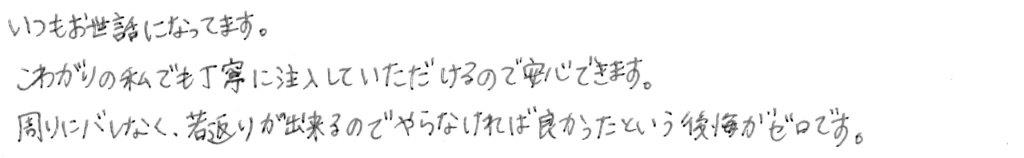 いつもお世話になってます。
こわがりの私でも丁寧に注入していただけるので安心できます。
周りにバレなく、若返りが出来るのでやらなければ良かったという後悔がゼロです。